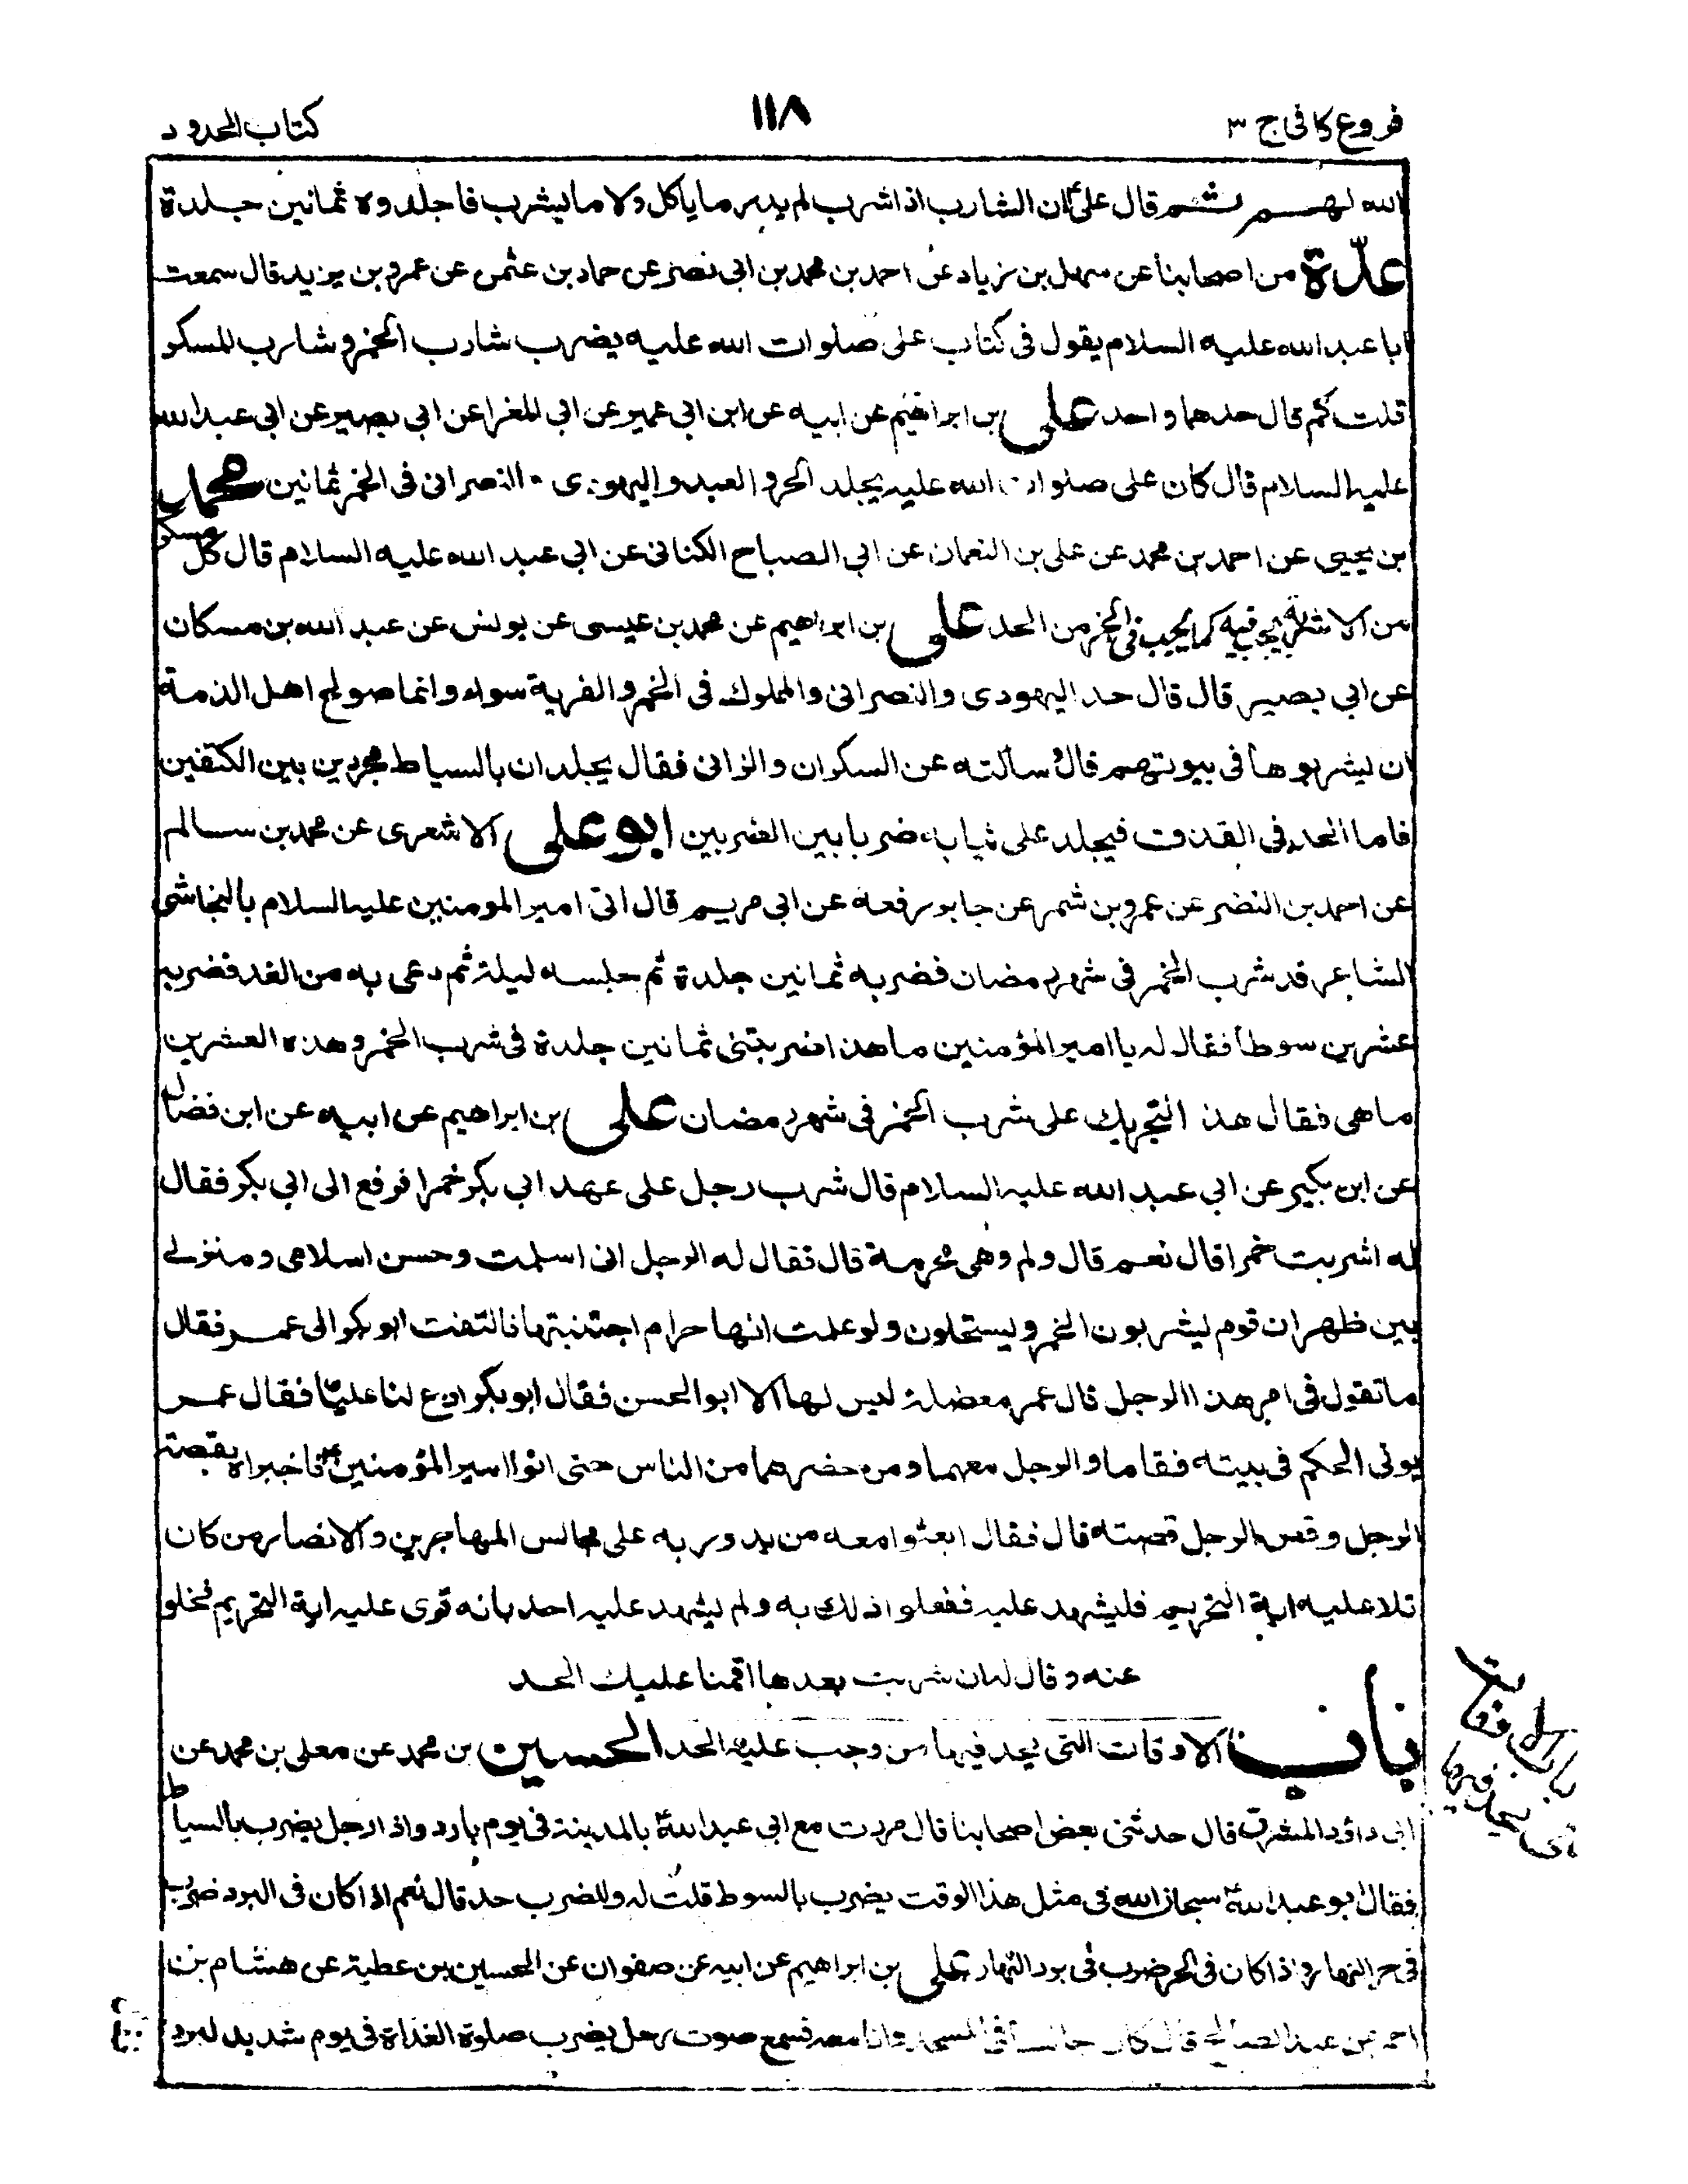 فروع کافی ج ۳
۱۱۸
کتاب الحدود
الله لهم ثم قال علیؑ ان الشارب اذا شرب لم یدر ما یاکل ولا ما یشرب فاجلدوه ثمانین جلدة
عدّة من اصحابنا عن سهل بن زیاد عن احمد بن محمد بن ابی نصر عن حماد بن عثمن عن عمرو بن یزید قال سمعت
ابا عبد الله علیه السلام یقول فی کتاب علی صلوات الله علیه یضرب شارب الخمر و شارب المسکر
قلت کم قال حدهما واحد علی بن ابراهیم عن ابیه عن ابن ابی عمیر عن ابی المغرا عن ابی بصیر عن ابی عبد الله
علیه السلام قال کان علی صلوات الله علیه یجلد الحر و العبد و الیهودی و النصرانی فی الخمر ثمانین محمد
بن یحیی عن احمد بن محمد عن علی بن النعمان عن ابی الصباح الکنانی عن ابی عبد الله علیه السلام قال کل مسکر
من الاشربة یجب فیه کما یجب فی الخمر من الحد علی بن ابراهیم عن محمد بن عیسی عن یونس عن عبد الله بن مسکان
عن ابی بصیر قال قال حد الیهودی والنصرانی والمملوك فی الخمر والفریة سواء وانما صولح اهل الذمة
ان یشربوها فی بیوتهم قال و سألته عن السکران والزانی فقال یجلدان بالسیاط مجردین بین الکتفین
فاما الحد فی القذف فیجلد علی ثیابه ضربا بین الضربین ابو علی الاشعری عن محمد بن سالم
عن احمد بن النضر عن عمرو بن شمر عن جابر رفعه عن ابی مریم قال اتی امیر المومنین علیه السلام بالنجاشی
الشاعر قد شرب الخمر فی شهر رمضان فضربه ثمانین جلدة ثم حبسه لیلة ثم دعی به من الغد فضربه
عشرین سوطا فقال له یا امیر المؤمنین ما هذا ضربتنی ثمانین جلدة فی شرب الخمر وهذه العشرین
ما هی فقال هذا لتجریك علی شرب الخمر فی شهر رمضان علی بن ابراهیم عن ابیه عن ابن فضال
عن ابن بکیر عن ابی عبد الله علیه السلام قال شرب رجل علی عهد ابی بکر خمرا فرفع الی ابی بکر فقال
له اشربت خمرا قال نعم قال ولم وهی محرمة قال فقال له الرجل انی اسلمت وحسن اسلامی ومنزلی
بین ظهران قوم یشربون الخمر ویستحلون ولو علمت انها حرام اجتنبتها فالتفت ابو بکر الی عمر فقال
ما تقول فی امر هذا الرجل قال عمر معضلة لیس لها الا ابو الحسن فقال ابو بکر ادع لنا علیّا فقال عمر
یوتی الحکم فی بیته فقاما والرجل معهما ومن حضرهما من الناس حتی اتوا امیر المؤمنینؑ فاخبراه بقصة
الرجل وقص الرجل قصته قال فقال ابعثوا معه من یدور به علی مجالس المهاجرین والانصار من کان
تلا علیه ایة التحریم فلیشهد علیه ففعلوا ذلك به ولم یشهد علیه احد بانه قری علیه ایة التحریم فخلو
عنه وقال له ان شربت بعدها اقمنا علیك الحد
باب الاوقات التی یحد فیها من وجب علیه الحد الحسین بن محمد عن معلی بن محمد عن
ابی داؤد المسترق قال حدثنی بعض اصحابنا قال مررت مع ابی عبد اللهؑ بالمدینة فی یوم بارد واذا رجل یضرب بالسیاط
فقال ابو عبد اللهؑ سبحان الله فی مثل هذا الوقت یضرب بالسوط قلت له وللضرب حد قال نعم اذا کان فی البرد ضرب
فی حر النهار واذا کان فی الحر ضرب فی برد النهار علی بن ابراهیم عن ابیه عن صفوان عن الحسین بن عطیة عن هشام بن
احمر عن عبد الصالح قال کان جالسا فی المسجد وانا معه فسمع صوت رجل یضرب صلوة الغداة فی یوم شدید البرد
باب الاوقات
التی یحد فیها